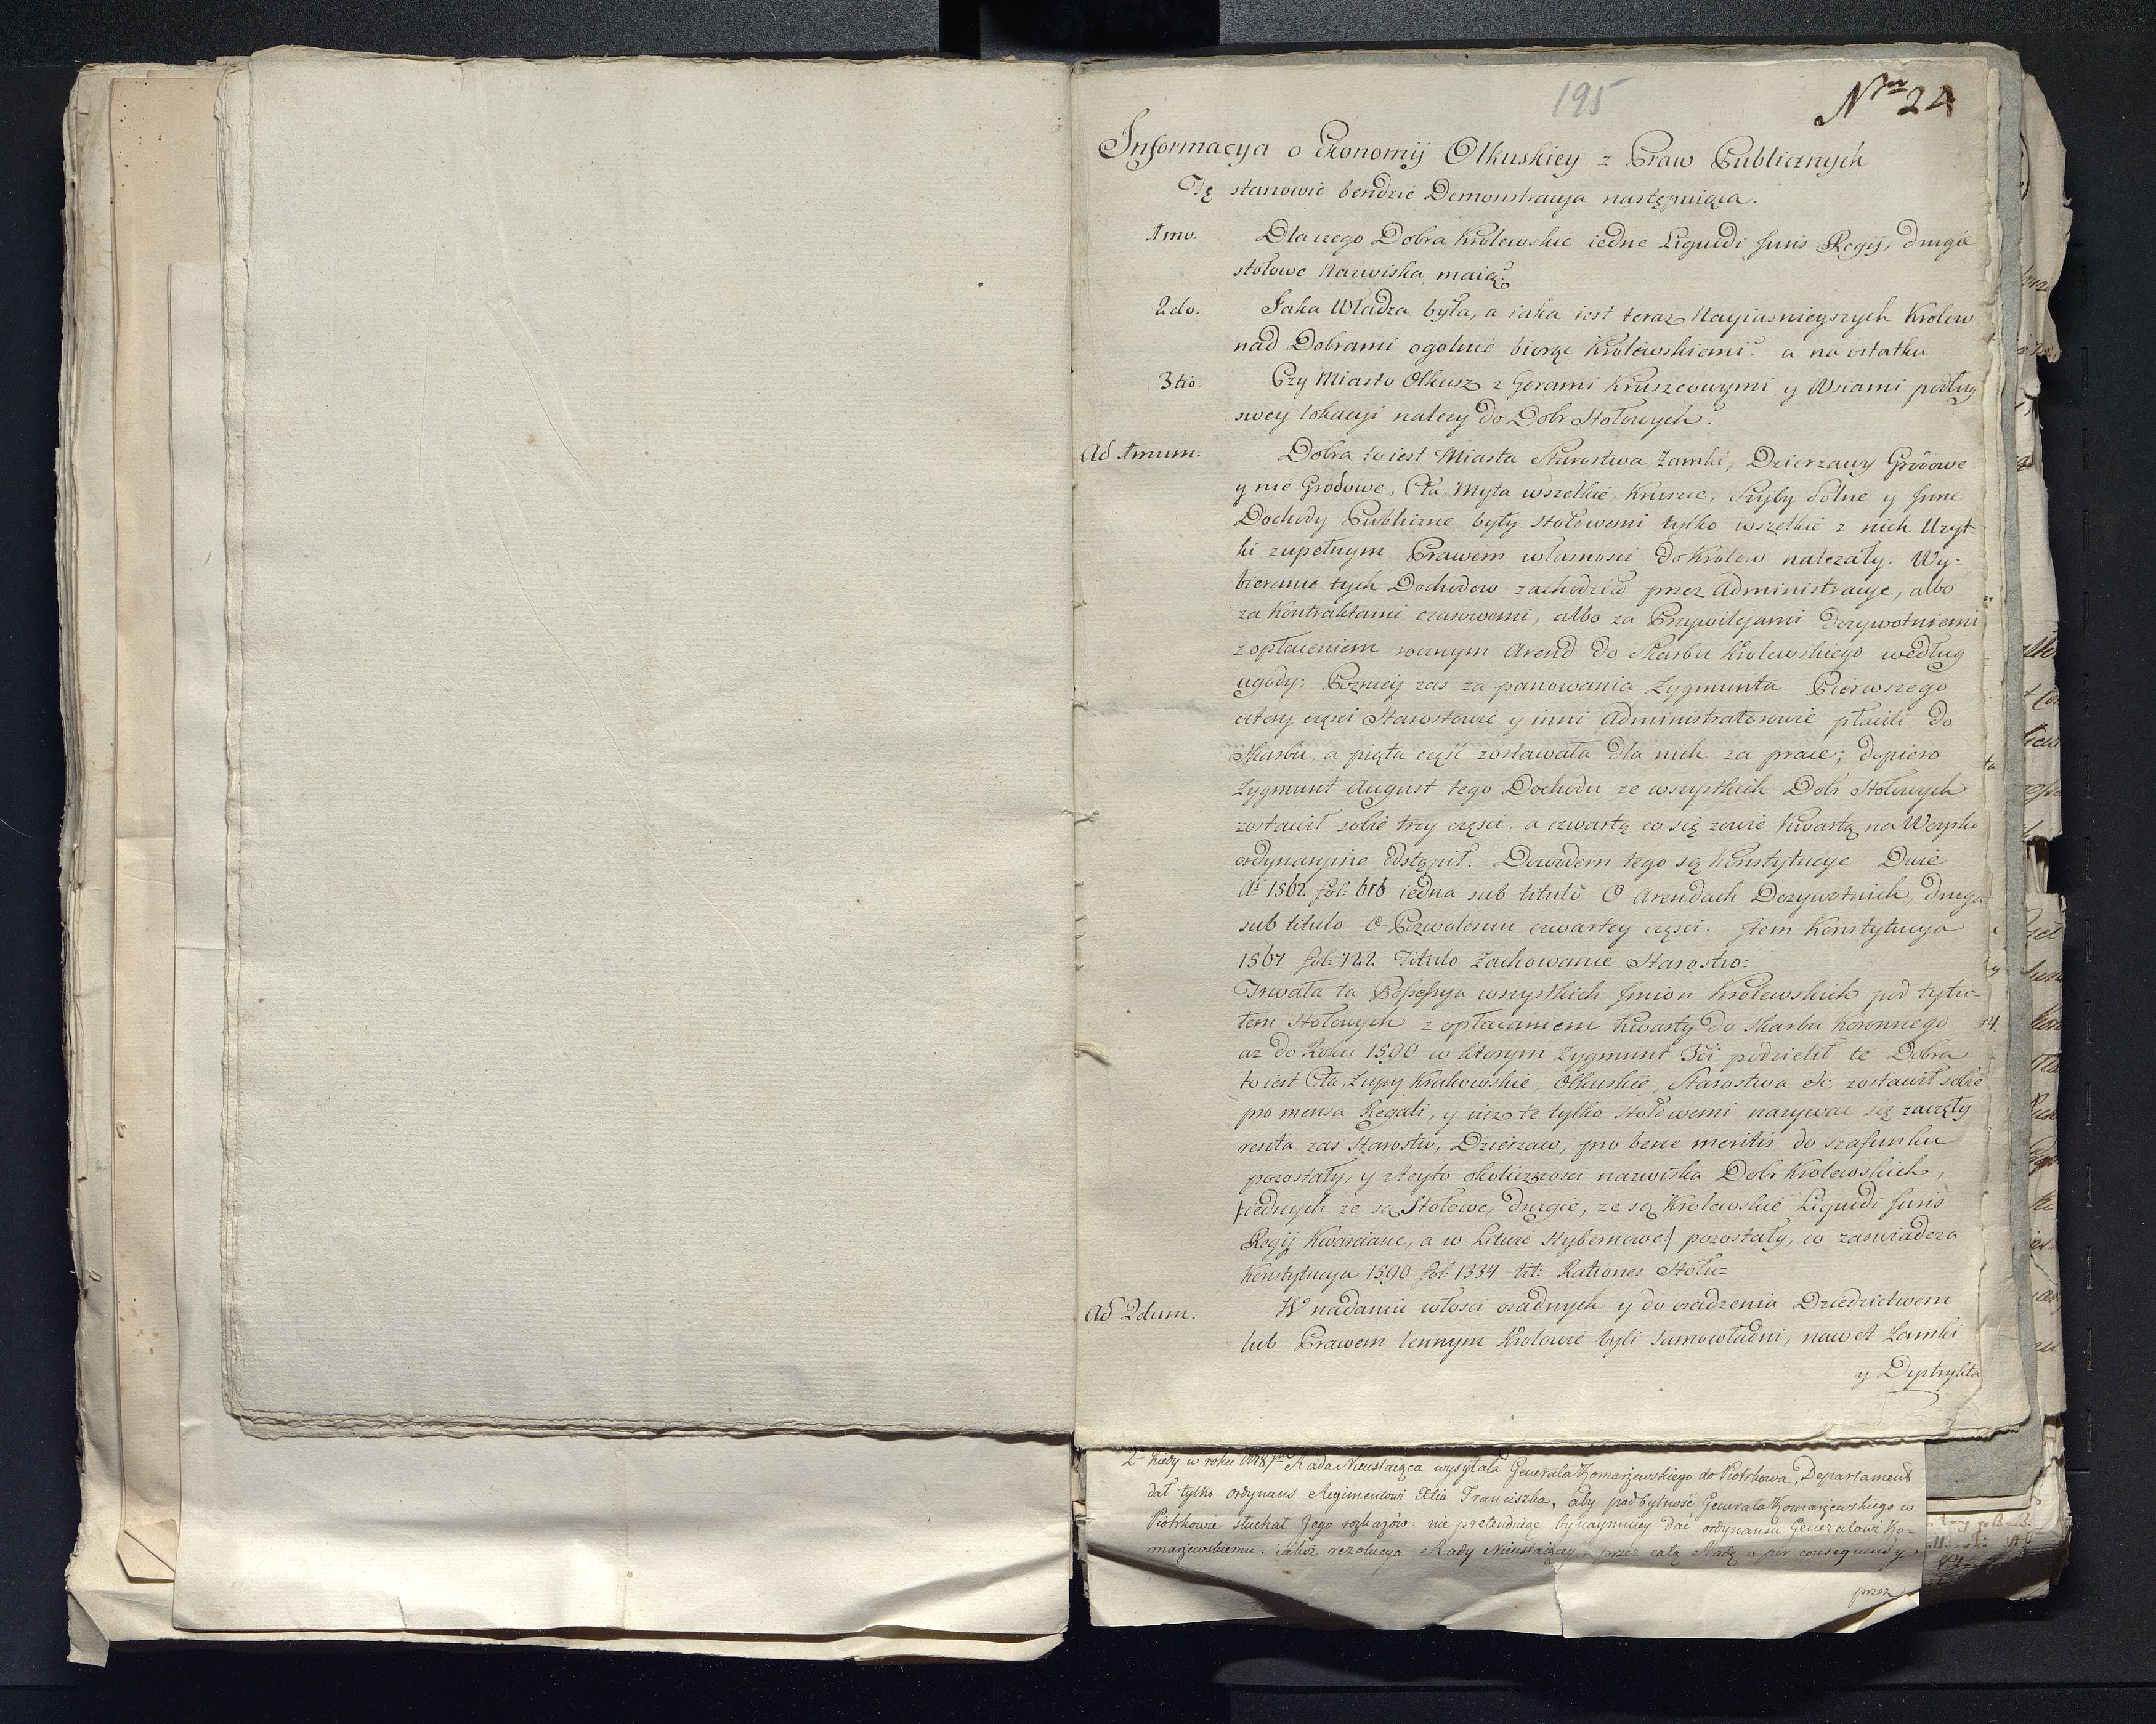 195
Nro 24
Informacya o Ekonomij Olkuskiey z Praw Publicznych
Tę stanowić bendzie Demonstracya następuiąca.
1mo. Dla czego Dobra Krolewskie iedne Liquidi Juris Regij, drugie
stołowe Nazwiska maią?
2do. Jaka Władza była, a iaka iest teraz Nayiasnieyszych Krolow
nad Dobrami ogolnie biorąc Krolewskiemi? a na ostatku
3tio. Czy Miasto Olkusz z Gorami Kruszcowymi y Wsiami podług
swey lokacyi należy do Dobr Stołowych?
Ad 1mum. Dobra to iest Miasta Starostwa, Zamki, Dzierzawy Grodowe
y nie Grodowe, Cła, Myta wszelkie, Kruszce, Szyby Solne y Inne
Dochody Publiczne były stołowemi tylko wszelkie z nich Uzyt-
ki zupełnym Prawem własnosci do Krolow nalezały. Wy-
bieranie tych Dochodow zachodziło przez Administracye, albo
za Kontraktami czasowemi, albo za Przywilejami Dozywotniemi
z opłaceniem rocznym Arend do Skarbu Krolewskiego według
ugody; Pozniey zas za panowania Zygmunta Pierwszego
cztery części Starostowie y inni Administratorowie płacili do
Skarbu, a piąta część zostawała dla nich za prace; dopiero
Zygmunt August tego Dochodu ze wszystkich Dobr Stołowych
zostawił sobie trzy części, a czwartą co się zowie Kwartą na Woysko
ordynaryine odstąpił. Dowodem tego są Konstytucye Dwie
Ai 1562 fol: 616 iedna sub titulo O Arendach Dozywotnich, druga
sub titulo O Pozwoleniu czwartey części. Item Konstytucya
1567 fol: 722 Titulo Zachowanie Starostw=
Trwała ta Possessya wszystkich Imion Krolewskich pod tytu-
łem Stołowych z opłacaniem Kwarty do Skarbu Koronnego
az do Roku 1590 w ktorym Zygmunt 3ci podzielił te Dobra
to iest Cła, Zupy Krakowskie, Olkuskie, Starostwa etc. zostawił sobie
pro mensa Regali, y iuz te tylko stołowemi nazywac się zaczęły
reszta zas Starostw, Dzierzaw, pro bene meritis do szafunku
pozostały, y z teyto okolicznosci nazwiska Dobr Krolewskich,
/iednych ze są Stołowe, drugie, ze są Krolewskie Liquidi Juris
Regij Kwarciane, a w Litwie Hybernowe:/ pozostały, co zaswiadcza
Konstytucya 1590 fol: 1334 tit: Rationes Stołu=
Ad 2dum. W nadaniu włosci osadnych y do osadzenia Dziedzictwem
lub Prawem lennym Krolowie byli samowładni, nawet Zamki
y Dystrykta
2o Kiedy w roku Rada Nieustaiąca wysyłała Generała Komarzewskiego do Piotrkowa, Departament
dał tylko ordynans Regimentowi Xcia Franciszka, aby pod bytność Generała Komarzewskiego w
Piotrkowie słuchał Jego rozkazów: nie pretenduiąc bynaymniey dać ordynansu Generałowi Ko-
marzewskiemu: iakoż rezolucya Rady Nieustaiącey, przez całą Radę a per consequens y
przez